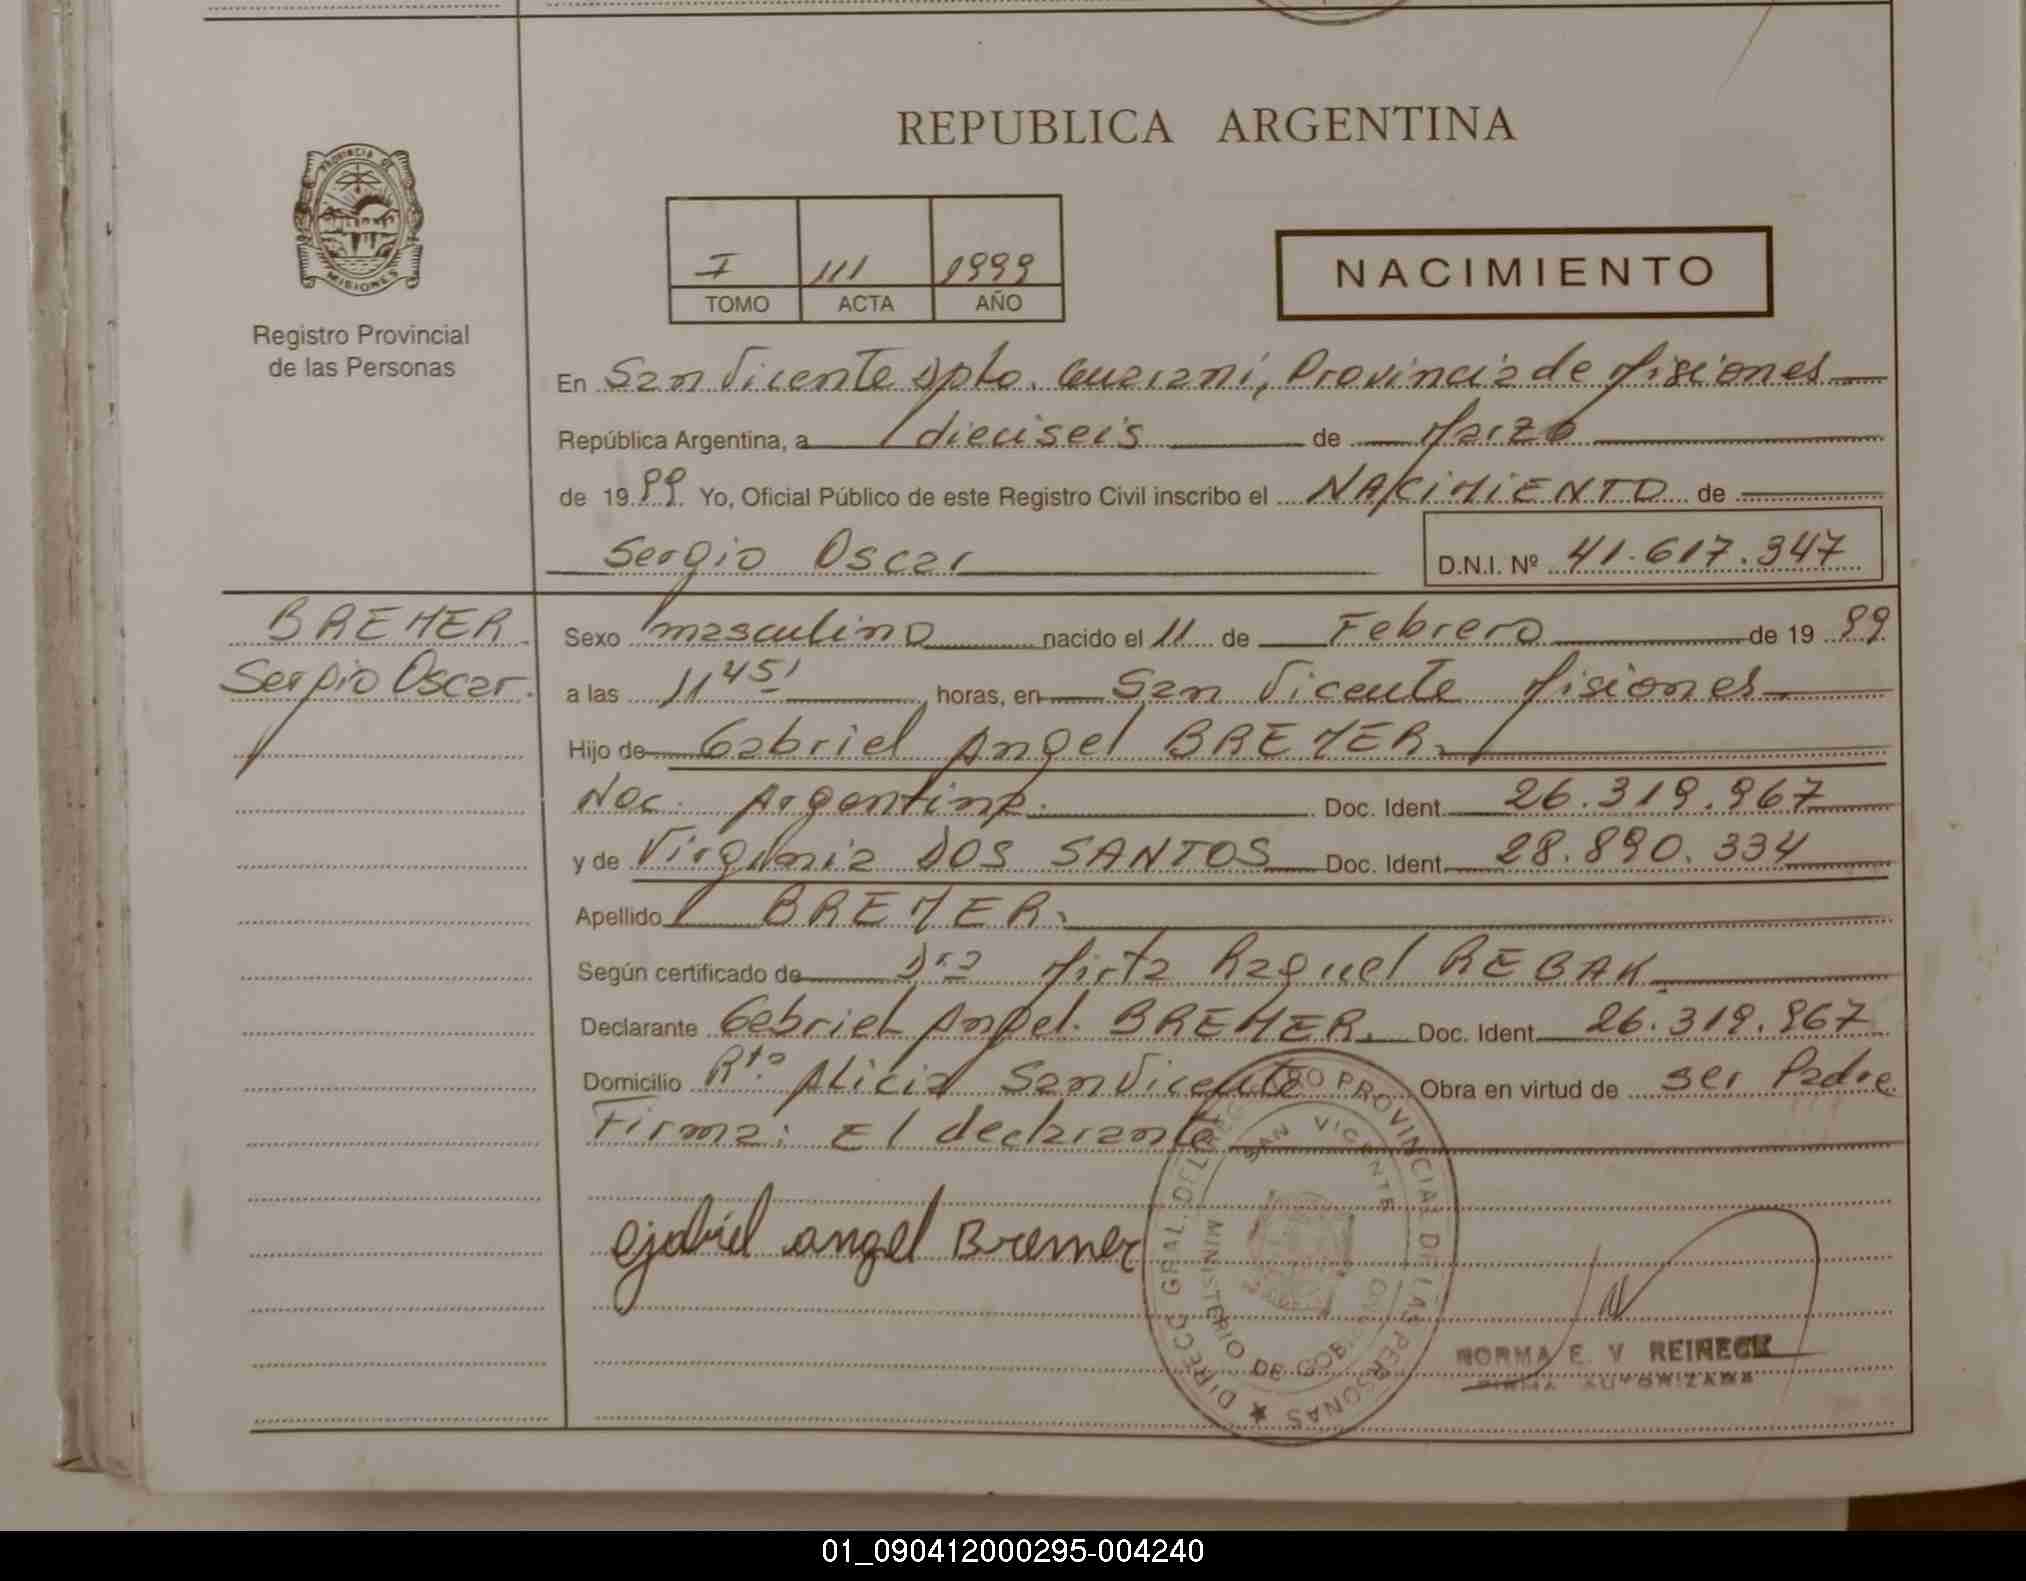 REPUBLICA ARGENTINA
PROVINCIA DE MISIONES
Registro Provincial
de las Personas
I 111 1999
TOMO ACTA AÑO
NACIMIENTO
En San Vicente Dpto. Guaraní, Provincia de Misiones
República Argentina, a dieciseis de Marzo
de 1999 Yo, Oficial Público de este Registro Civil inscribo el NACIMIENTO de
Sergio Oscar D.N.I. Nº 41.617.347
BREMER
Sergio Oscar.
Sexo masculino nacido el 11 de Febrero de 1999
a las 11 45' horas, en San Vicente Misiones
Hijo de Gabriel Angel BREMER.
Nac. Argentina. Doc. Ident. 26.319.967
y de Virginia DOS SANTOS Doc. Ident. 28.890.334
Apellido BREMER.
Según certificado de Dra Mirta Raquel REBAK
Declarante Gabriel Angel. BREMER. Doc. Ident. 26.319.967
Domicilio Rto Alicia San Vicente Obra en virtud de ser Padre
Firma: El declarante
Gabriel angel Bremer
DIRECC GRAL. DEL REGISTRO PROVINCIAL DE LAS PERSONAS
SAN VICENTE
MINISTERIO DE GOBIERNO
NORMA E. V REINECK
FIRMA AUTORIZADA
01_090412000295-004240